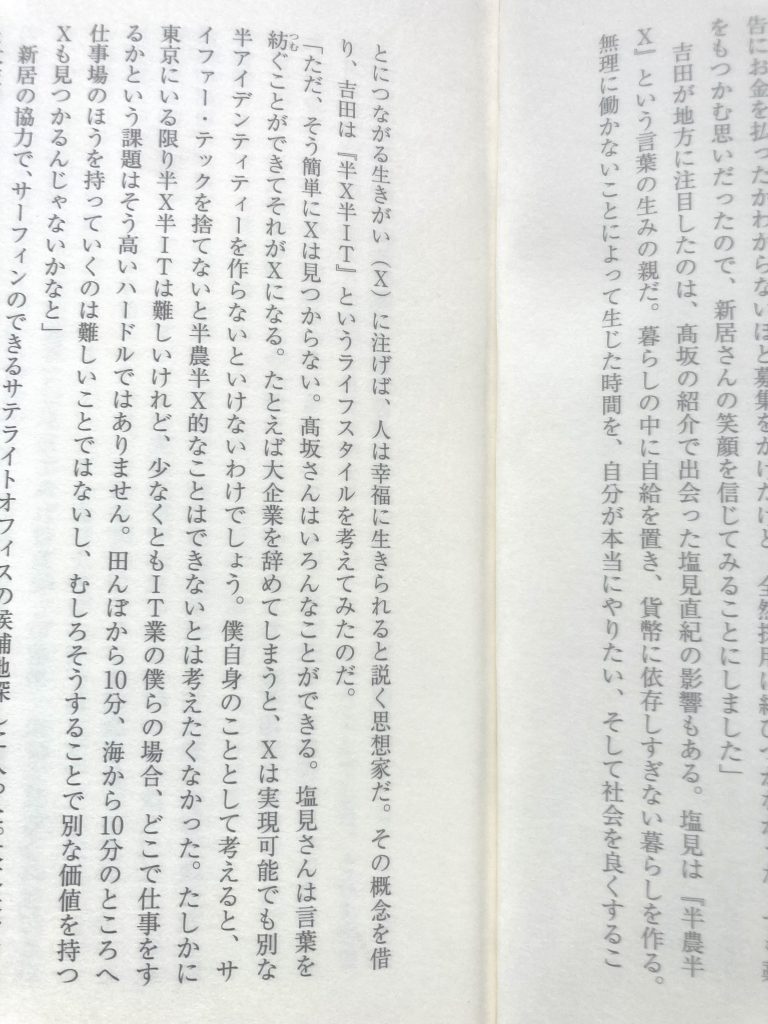 告にお金を払ったかわからないほど募集をかけたけど、全然採用に結びつかなかった。
をもつかむ思いだったので、新居さんの笑顔を信じてみることにしました」
吉田が地方に注目したのは、髙坂の紹介で出会った塩見直紀の影響もある。塩見は『半農半
X』という言葉の生みの親だ。暮らしの中に自給を置き、貨幣に依存しすぎない暮らしを作る。
無理に働かないことによって生じた時間を、自分が本当にやりたい、そして社会を良くするこ
とにつながる生きがい（X）に注げば、人は幸福に生きられると説く思想家だ。その概念を借
り、吉田は『半X半IT』というライフスタイルを考えてみたのだ。
「ただ、そう簡単にXは見つからない。髙坂さんはいろんなことができる。塩見さんは言葉を
紡ぐことができてそれがXになる。たとえば大企業を辞めてしまうと、Xは実現可能でも別な
半アイデンティティーを作らないといけないわけでしょう。僕自身のこととして考えると、サ
イファー・テックを捨てないと半農半X的なことはできないとは考えたくなかった。たしかに
東京にいる限り半X半ITは難しいけれど、少なくともIT業の僕らの場合、どこで仕事をす
るかという課題はそう高いハードルではありません。田んぼから10分、海から10分のところへ
仕事場のほうを持っていくのは難しいことではないし、むしろそうすることで別な価値を持つ
Xも見つかるんじゃないかなと」
新居の協力で、サーフィンのできるサテライトオフィスの候補地探し